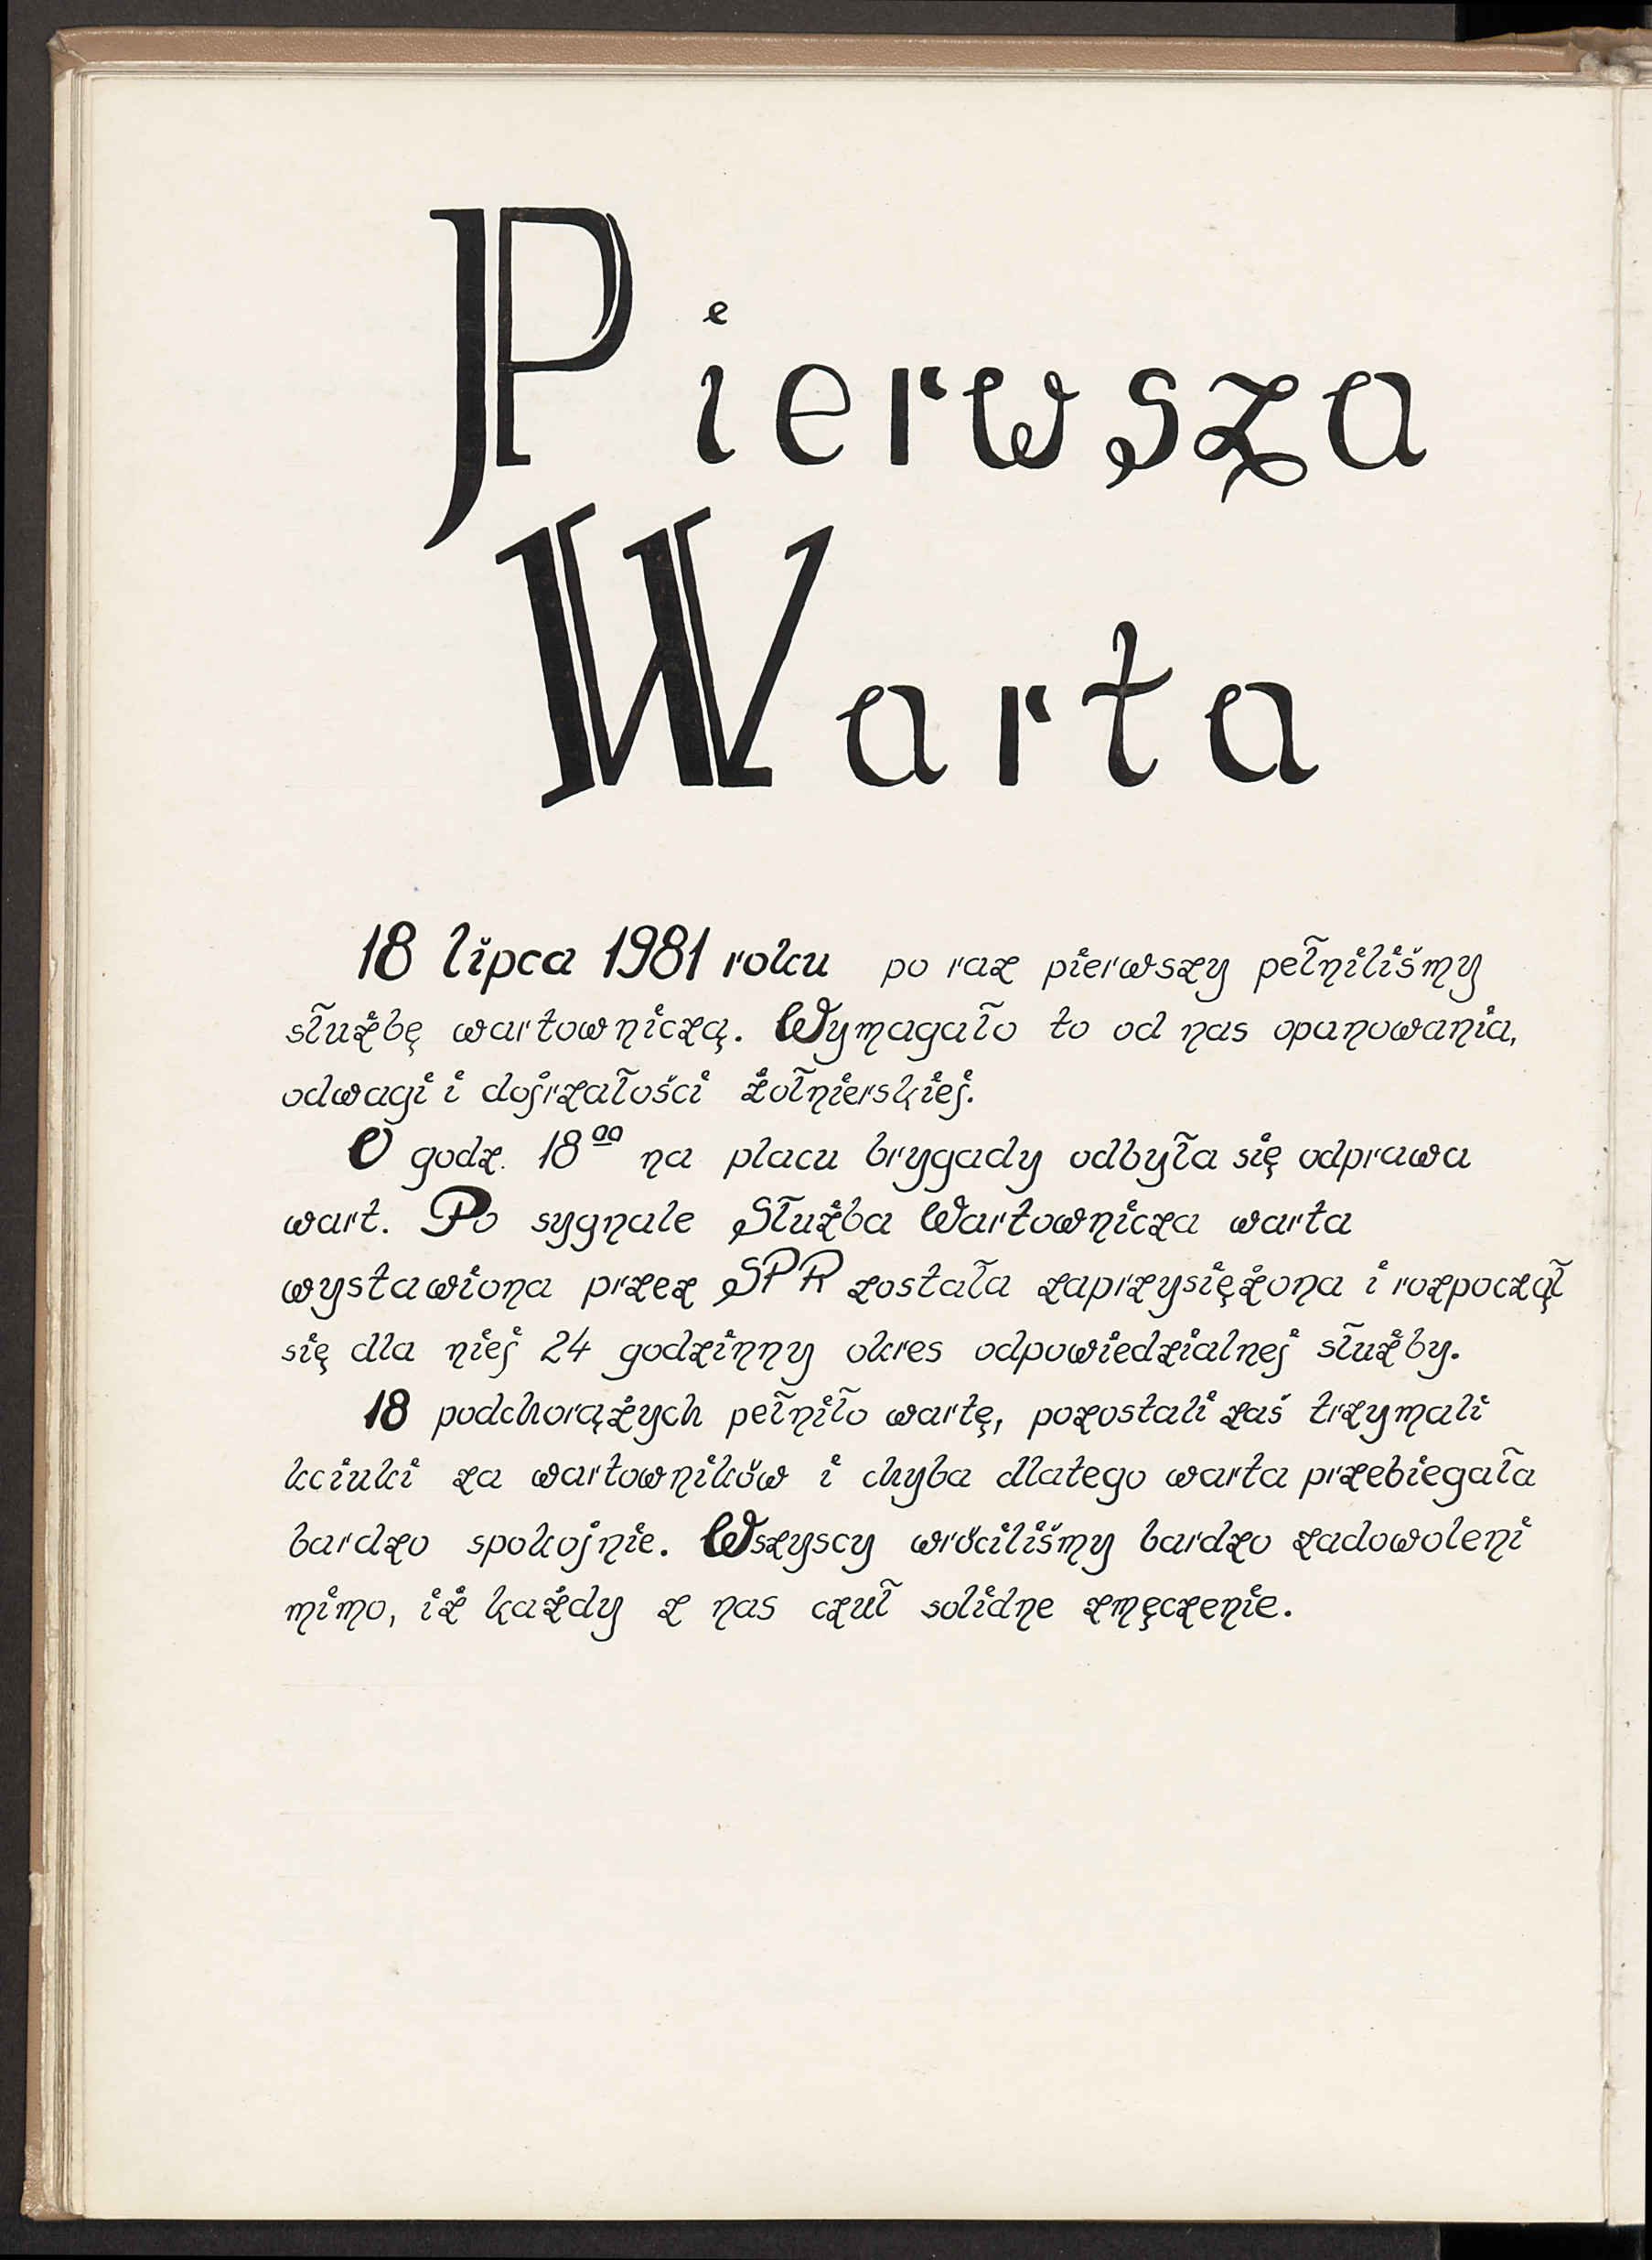 Pierwsza
Warta
18 lipca 1981 roku po raz pierwszy pełniliśmy
służbę wartowniczą. Wymagało to od nas opanowania,
odwagi i dojrzałości żołnierskiej.
O godz. 18⁰⁰ na placu brygady odbyła się odprawa
wart. Po sygnale Służba Wartownicza warta
wystawiona przez SPR została zaprzysiężona i rozpoczął
się dla niej 24 godzinny okres odpowiedzialnej służby.
18 podchorążych pełniło wartę, pozostali zaś trzymali
kciuki za wartowników i chyba dlatego warta przebiegała
bardzo spokojnie. Wszyscy wróciliśmy bardzo zadowoleni
mimo, iż każdy z nas czuł solidne zmęczenie.